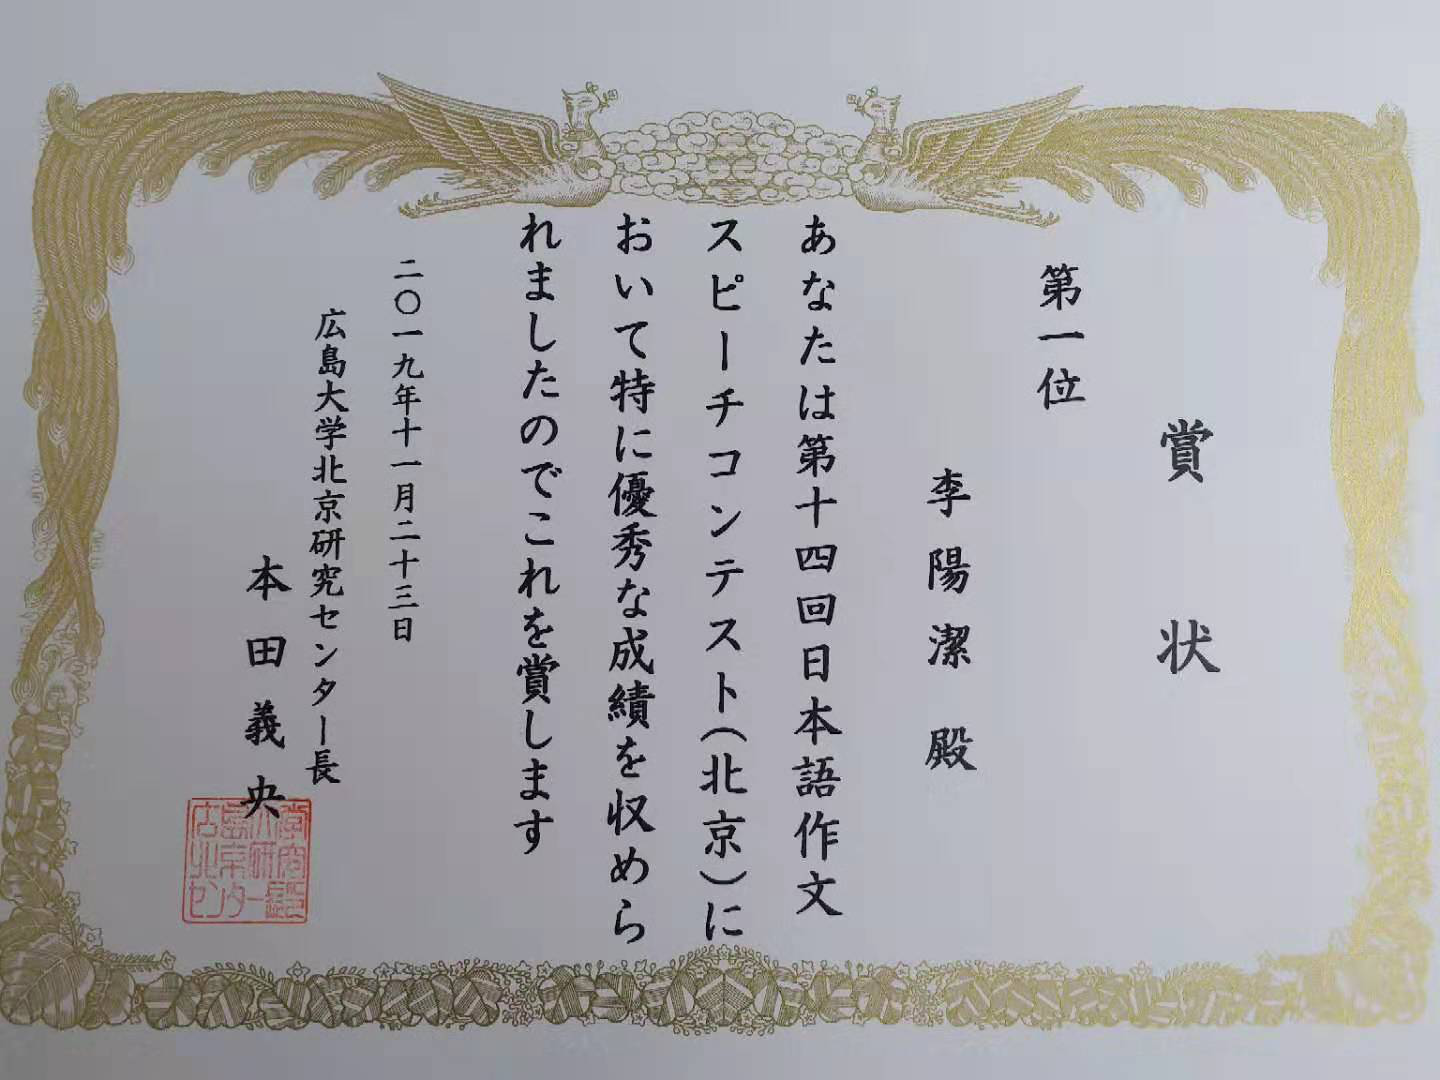 賞状
第一位
李陽潔殿
あなたは第十四回日本語作文
スピーチコンテスト(北京)に
おいて特に優秀な成績を収めら
れましたのでこれを賞します
二〇一九年十一月二十三日
広島大学北京研究センター長
本田義央